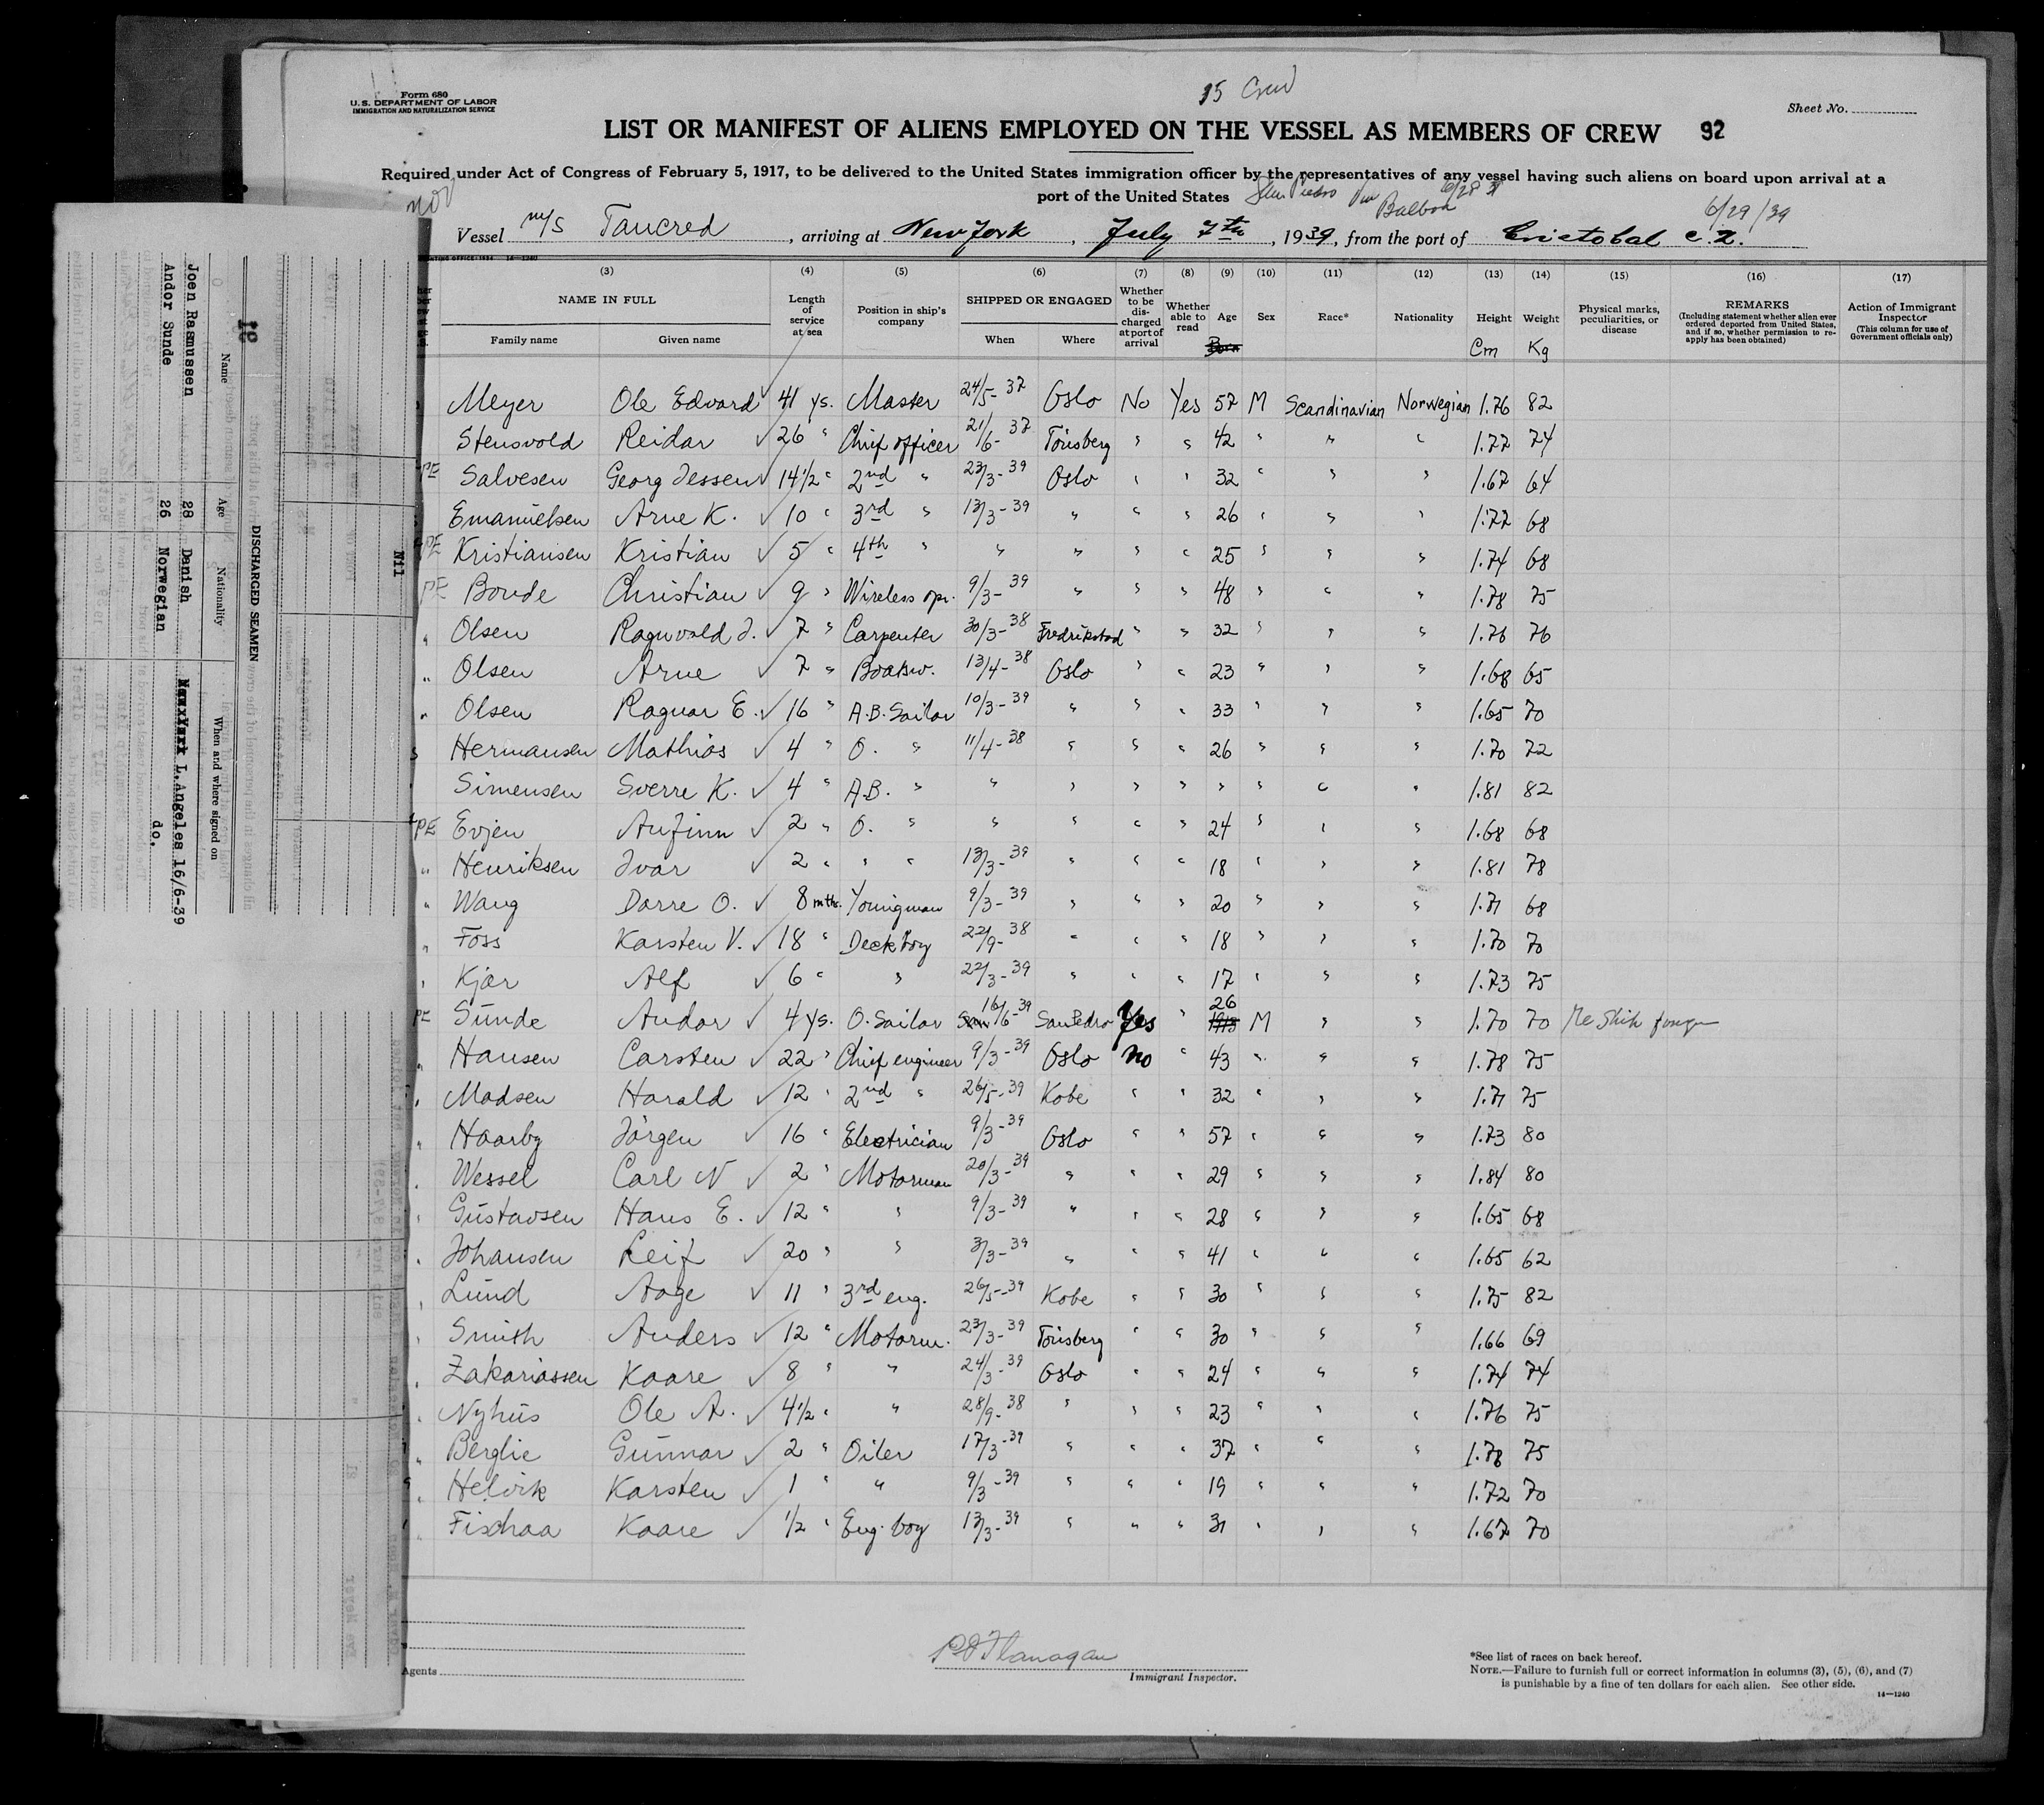 Form 680
U. S. DEPARTMENT OF LABOR
IMMIGRATION AND NATURALIZATION SERVICE
35 Crew
Sheet No.
LIST OR MANIFEST OF ALIENS EMPLOYED ON THE VESSEL AS MEMBERS OF CREW 92
Required under Act of Congress of February 5, 1917, to be delivered to the United States immigration officer by the representatives of any vessel having such aliens on board upon arrival at a
port of the United States San Pedro via Balboa 6/28 39
nor
6/29/39
Vessel m/s Tancred, arriving at New York, July 7th, 1939, from the port of Cristobal C.Z.
(3) (4) (5) (6) (7) (8) (9) (10) (11) (12) (13) (14) (15) (16) (17)
NAME IN FULL Family name Given name Length of service at sea Position in ship's company SHIPPED OR ENGAGED When Where Whether to be discharged at port of arrival Whether able to read Age Sex Race* Nationality Height Cm Weight Kg Physical marks, peculiarities, or disease REMARKS (Including statement whether alien ever ordered deported from United States, and if so, whether permission to reapply has been obtained) Action of Immigrant Inspector (This column for use of Government officials only)
Meyer Ole Edvard 41 ys. Master 24/5-37 Oslo No Yes 57 M Scandinavian Norwegian 1.76 82
Stensvold Reidar 26 " Chief officer 21/6-37 Tönsberg " " 42 " " " 1.77 74
PE Salvesen Georg Jessen 14 1/2 " 2nd " 23/3-39 Oslo " " 32 " " " 1.67 64
Emanuelsen Arne K. 10 " 3rd " 13/3-39 " " " 26 " " " 1.77 68
PE Kristiansen Kristian 5 " 4th " " " " " 25 " " " 1.74 68
PE Bonde Christian 9 " Wireless opr. 9/3-39 " " " 48 " " " 1.78 75
Olsen Ragnvald J. 7 " Carpenter 30/3-38 Fredrikstad " " 32 " " " 1.76 76
Olsen Arne 7 " Boatsw. 13/4-38 Oslo " " 23 " " " 1.68 65
Olsen Ragnar E. 16 " A.B. Sailor 10/3-39 " " " 33 " " " 1.65 70
Hermansen Mathias 4 " O. " 11/4-38 " " " 26 " " " 1.70 72
Simensen Sverre K. 4 " A.B. " " " " " " " " " 1.81 82
PE Evjen Anfinn 2 " O. " " " " " 24 " " " 1.68 68
Henriksen Ivar 2 " " " 13/3-39 " " " 18 " " " 1.81 78
Wang Dorre O. 8 mths. Youngman 9/3-39 " " " 20 " " " 1.71 68
Foss Karsten V. 18 " Deckboy 22/9-38 " " " 18 " " " 1.70 70
Kjær Alf 6 " " 22/3-39 " " " 17 " " " 1.73 75
PE Sunde Andor 4 ys. O. Sailor San 16/6-39 San Pedro Yes " 26 1913 M " " 1.70 70
Hansen Carsten 22 " Chief engineer 9/3-39 Oslo no " 43 " " " 1.78 75
Madsen Harald 12 " 2nd " 26/5-39 Kobe " " 32 " " " 1.71 75
Haarby Jörgen 16 " Electrician 9/3-39 Oslo " " 57 " " " 1.73 80
Wessel Carl N 2 " Motorman 20/3-39 " " " 29 " " " 1.84 80
Gustavsen Hans E. 12 " " 9/3-39 " " " 28 " " " 1.65 68
Johansen Leif 20 " " 3/3-39 " " " 41 " " " 1.65 62
Lund Aage 11 " 3rd eng. 26/5-39 Kobe " " 30 " " " 1.75 82
Smith Anders 12 " Motorm. 23/3-39 Tönsberg " " 30 " " " 1.66 69
Zakariassen Kaare 8 " " 24/3-39 Oslo " " 24 " " " 1.74 74
Nyhus Ole A. 4 1/2 " " 28/9-38 " " " 23 " " " 1.76 75
Berglie Gunnar 2 " Oiler 17/3-39 " " " 37 " " " 1.78 75
Helvik Karsten 1 " " 9/3-39 " " " 19 " " " 1.72 70
Fischaa Kaare 1/2 " Eng. boy 13/3-39 " " " 31 " " " 1.67 70
Agents
P J Flanagan
Immigrant Inspector.
*See list of races on back hereof.
NOTE.—Failure to furnish full or correct information in columns (3), (5), (6), and (7)
is punishable by a fine of ten dollars for each alien. See other side.
14—1240
Nil
DISCHARGED SEAMEN
Name Age Nationality When and where signed on
Joen Rasmussen 28 Danish L.Angeles 16/6-39
Andor Sunde 26 Norwegian do.